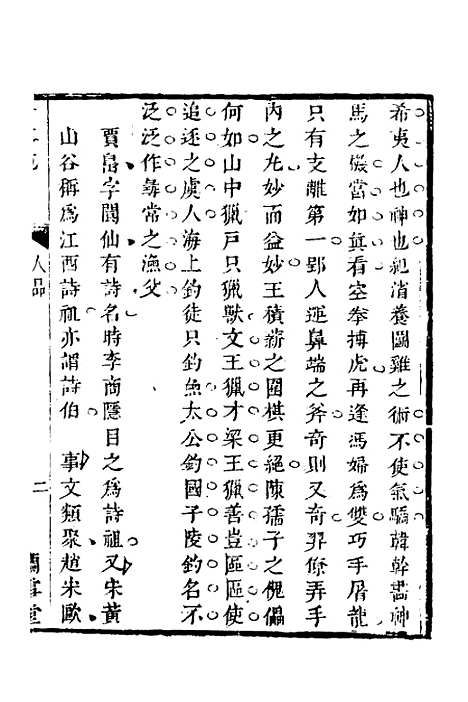 希夷人也神也紀消養鬬雞之術不使氣驕韓幹畵神
馬之機當如真看空拳搏虎再逢馮婦爲雙巧手屠龍
只有支離第一郢人運鼻端之斧奇則又奇羿僚弄手
內之丸妙而益妙王積薪之圍棋更絕陳孺子之傀儡
何如山中獵戸只獵獸文王獵才梁王獵善豈區區使
追逐之虞人海上釣徒只釣魚太公釣國子陵釣名不
泛泛作尋常之漁父
賈島字閬仙有詩名時李商隱目之爲詩祖又宋黃
山谷稱爲江西詩祖亦謂詩伯　事文類聚趙宋歐
人品
二